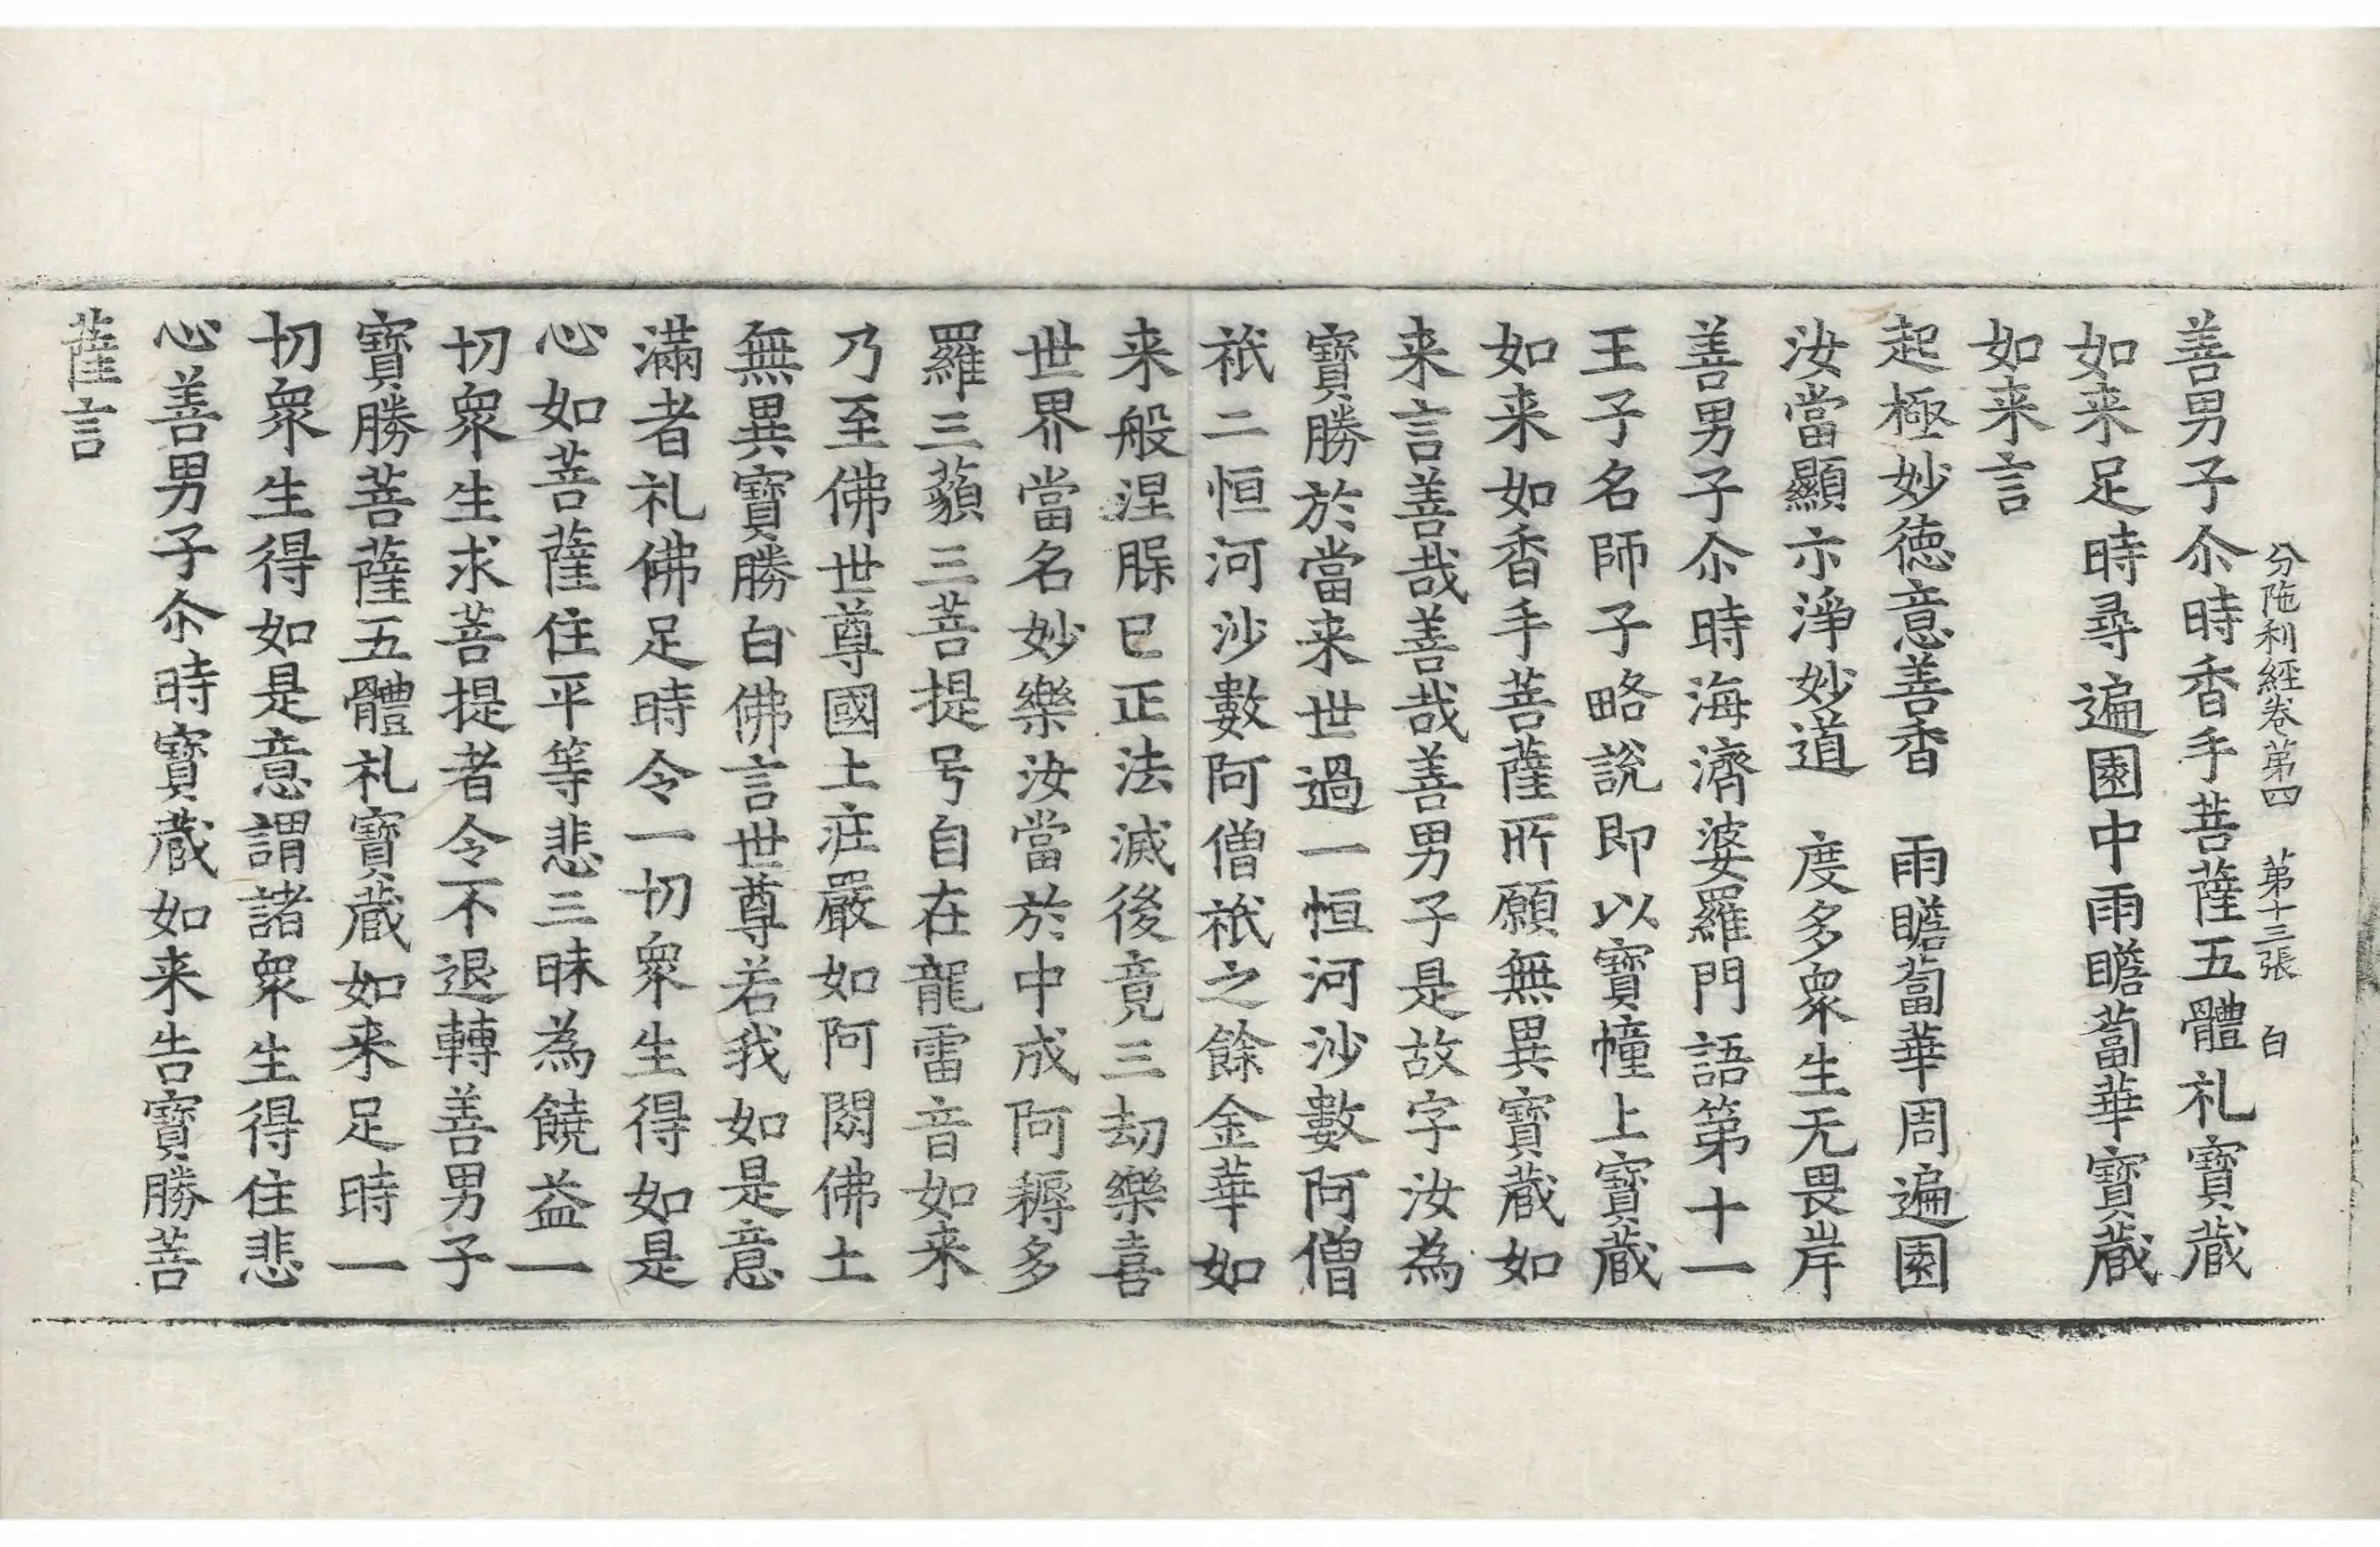 分陁利經卷第四　第十三張　白
善男子尒時香手菩薩五體礼寶藏
如来足時尋遍園中雨瞻蔔華寶藏
如来言
起極妙徳意善香　雨瞻蔔華周遍園
汝當顯示淨妙道　度多衆生无畏岸
善男子尒時海濟婆羅門語第十一
王子名師子略說即以寶幢上寶藏
如来如香手菩薩所願無異寶藏如
来言善哉善哉善男子是故字汝為
寶勝於當来世過一恒河沙數阿僧
祇二恒河沙數阿僧祇之餘金華如
来般涅槃已正法滅後竟三劫樂喜
世界當名妙樂汝當於中成阿耨多
羅三藐三菩提号自在龍雷音如来
乃至佛世尊國土莊嚴如阿閦佛土
無異寶勝白佛言世尊若我如是意
滿者礼佛足時令一切衆生得如是
心如菩薩住平等悲三昧為饒益一
切衆生求菩提者令不退轉善男子
寶勝菩薩五體礼寶藏如来足時一
切衆生得如是意謂諸衆生得住悲
心善男子尒時寶藏如来告寶勝菩
薩言